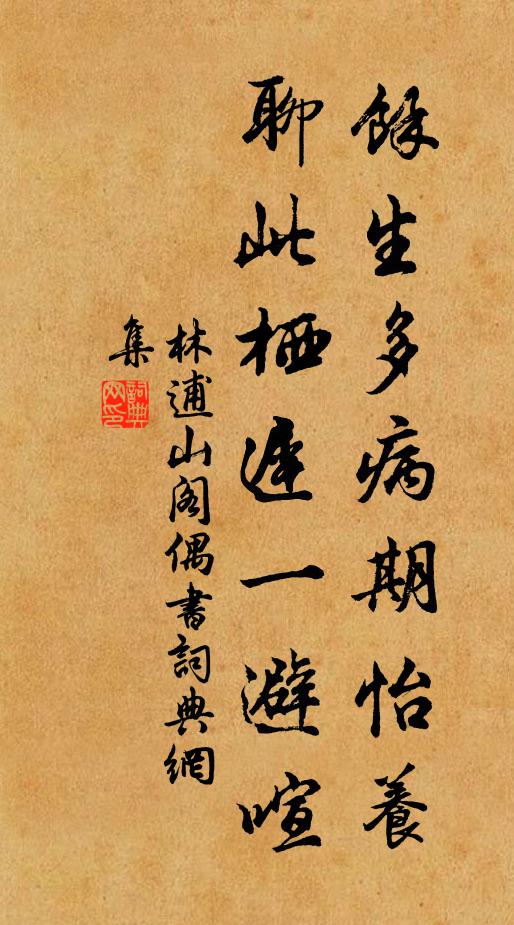 餘生多病期怡養
聊此栖遲一避喧
林逋山閣偶書詞典網
集
詞典
网印